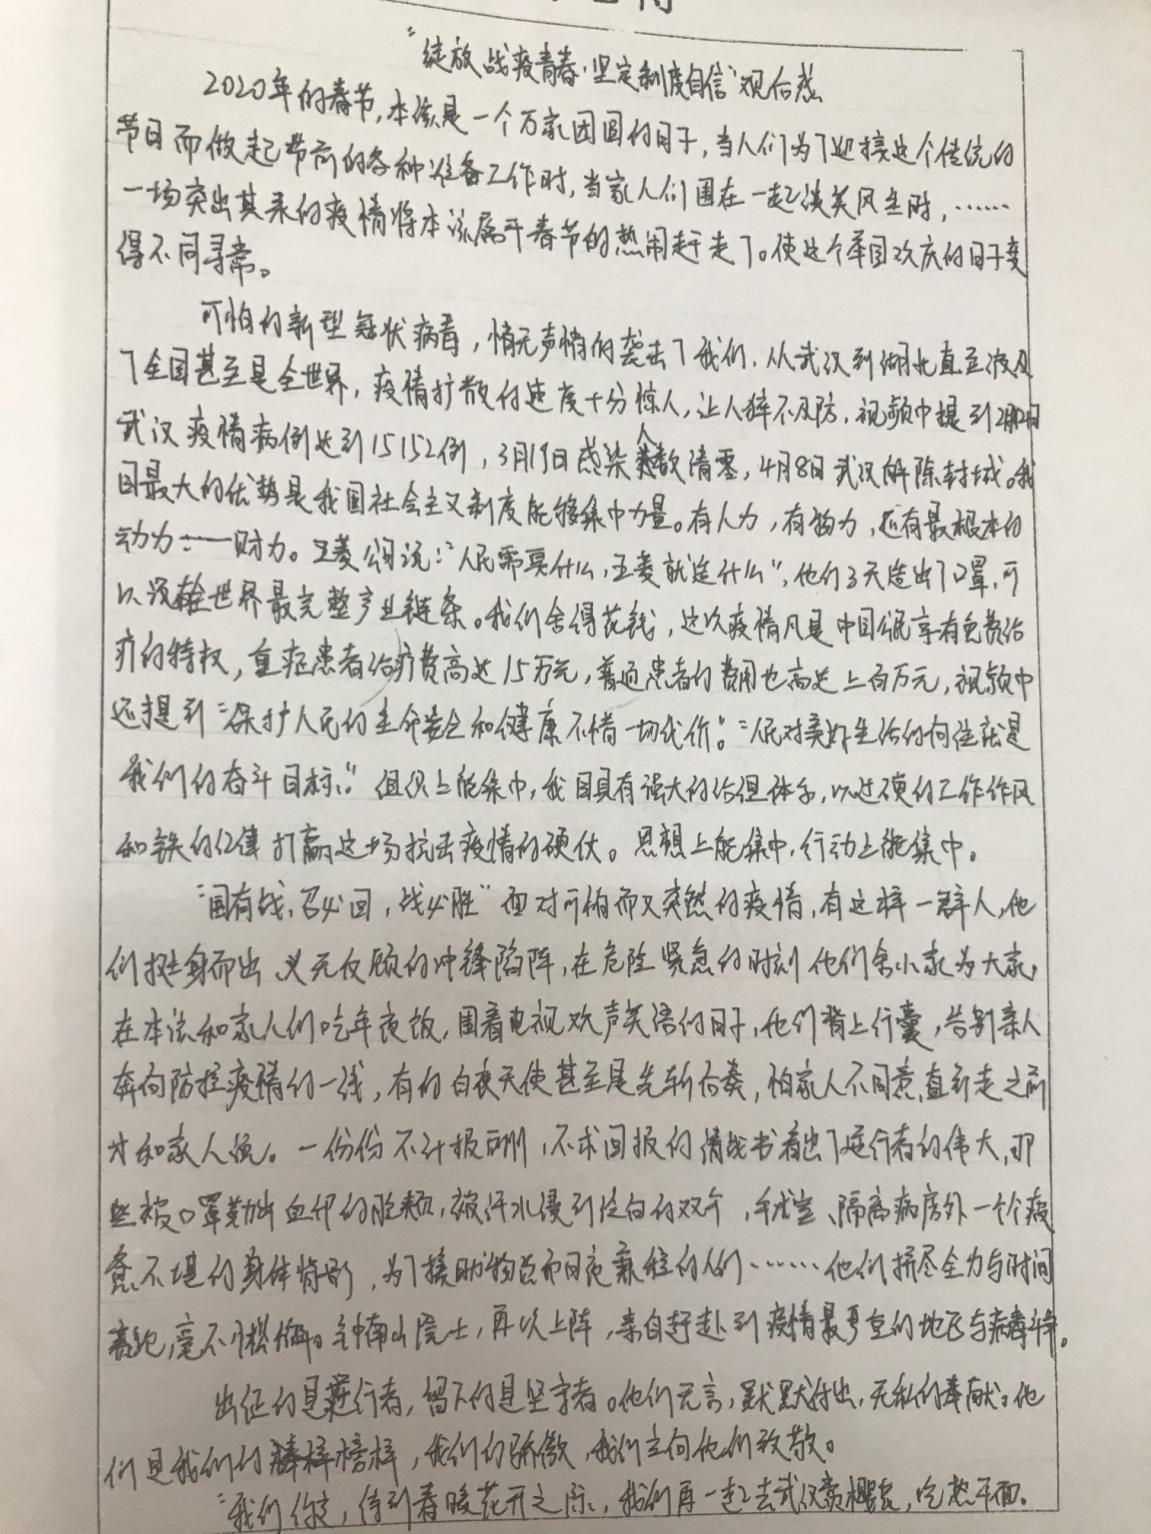 “绽放战疫青春·坚定制度自信”观后感
2020年的春节,本该是一个万家团圆的日子,当人们为了迎接这个传统的
节日而做起节前的各种准备工作时,当家人们围在一起谈笑风生时,……
一场突出其来的疫情将本该属于春节的热闹赶走了。使这个举国欢庆的日子变
得不同寻常。
可怕的新型冠状病毒,悄无声悄的袭击了我们,从武汉到湖北直至波及
了全国甚至是全世界,疫情扩散的速度十分惊人,让人猝不及防,视频中提到2月12日
武汉疫情病例达到15152例,3月19日感染人数清零,4月8日武汉解除封城。我
国最大的优势是我国社会主义制度能够集中力量。有人力,有物力,还有最根本的
动力——财力。五菱公司说:“人民需要什么,五菱就造什么”,他们3天造出了口罩,可
以说全世界最完整产业链条。我们舍得花钱,这次疫情凡是中国公民享有免费治
疗的特权,重症患者治疗费高达15万元,普通患者的费用也高达上百万元,视频中
还提到“保护人民的生命安全和健康不惜一切代价。”“人民对美好生活的向往就是
我们的奋斗目标。”组织上能集中,我国具有强大的治理体系,以过硬的工作作风
和铁的纪律打赢这场抗击疫情的硬仗。思想上能集中,行动上能集中。
“国有战,召必回,战必胜”面对可怕而又突然的疫情,有这样一群人,他
们挺身而出 义无反顾的冲锋陷阵,在危险紧急的时刻他们舍小家为大家,
在本该和家人们吃年夜饭,围着电视欢声笑语的日子,他们背上行囊,告别亲人
奔向防控疫情的一线,有的白衣天使甚至是先斩后奏,怕家人不同意,直到走之前
才和家人说。一份份不计报酬,不求回报的请战书看出了逆行者的伟大,那
些被口罩勒出血印的脸颊,被汗水浸到泛白的双手,手术室、隔离病房外一个个疲
惫不堪的身体背影,为了援助物资而日夜兼程的人们……他们拼尽全力与时间
赛跑,毫不松懈。钟南山院士,再次上阵,亲自赶赴到疫情最严重的地区与病毒斗争。
出征的是逆行者,留下的是坚守者。他们无言,默默付出,无私的奉献。他
们是我们的榜样,我们的骄傲,我们应向他们致敬。
“我们约定,待到春暖花开之际,我们再一起去武汉赏樱花,吃热干面。